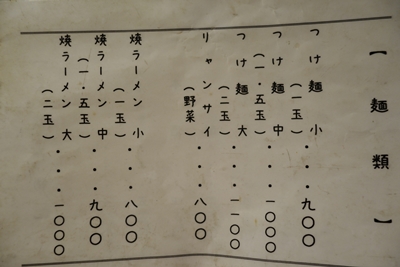 【麺類】
つけ麺 小・・・九〇〇
（一玉）
つけ麺 中・・・一〇〇〇
（一・五玉）
つけ麺 大・・・一一〇〇
（二玉）
リャンサイ・・・八〇〇
（野菜）
焼ラーメン 小・・・八〇〇
（一玉）
焼ラーメン 中・・・九〇〇
（一・五玉）
焼ラーメン 大・・・一〇〇〇
（二玉）